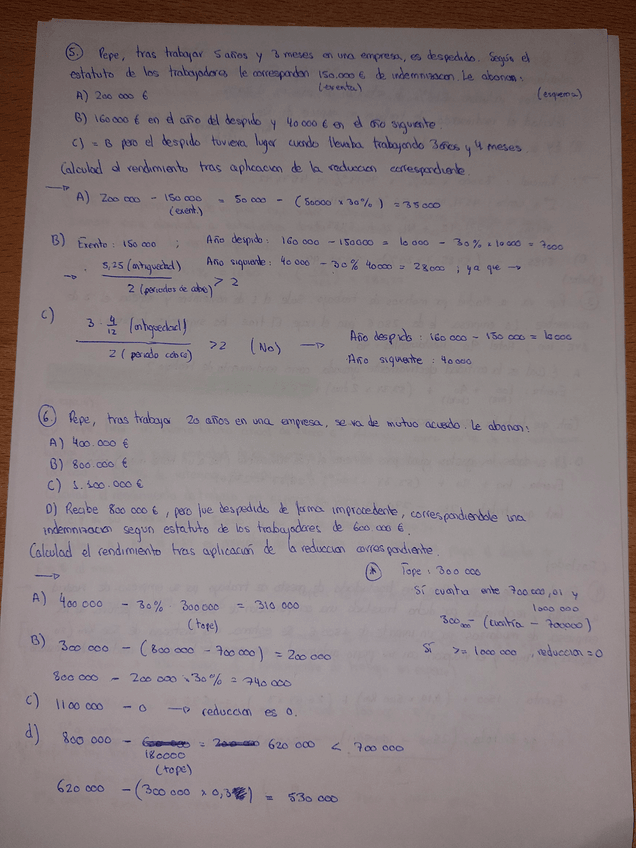 5. Pepe, tras trabajar 5 años y 3 meses en una empresa, es despedido. Según el
estatuto de los trabajadores le corresponden 150.000 € de indemnizacion. Le abonan:
(exenta)
(esquema)
A) 200 000 €
B) 160000 € en el año del despido y 40000 € en el año siguiente.
C) = B pero el despido tuviera lugar cuando llevaba trabajando 3 años y 4 meses.
Calculad el rendimiento tras aplicacion de la reduccion correspondiente.
A) 200 000 - 150 000 = 50 000 - (50000 x 30%) = 35000
(exent.)
B) Exento: 150 000 ; Año despido: 160 000 - 150000 = 10 000 - 30% x 10000 = 7000
→ 5,25 (antiguedad) Año siguiente: 40 000 - 30% 40000 = 28000 ; ya que →
2 (periodos de cobro) > 2
C) 3 4/12 (antiguedad)
2 (periodo cobro) > 2 (No) → Año despido: 160 000 - 150 000 = 10000
Año siguiente: 40000
6. Pepe, tras trabajar 20 años en una empresa, se va de mutuo acuerdo. Le abonan:
A) 400.000 €
B) 800.000 €
C) 1.100.000 €
D) Recibe 800000 €, pero fue despedido de forma improcedente, correspondiendole una
indemnizacion segun estatuto de los trabajadores de 600.000 €.
Calculad el rendimiento tras aplicación de la reduccion correspondiente.
Tope: 300 000
Si cuantia ente 700000,01 y
1000 000
300 000 - (cuantia - 700000)
Si >= 1000 000, reduccion = 0
A) 400 000 - 30% 300 000 = 310 000
(tope)
B) 300 000 - (800 000 - 700 000) = 200 000
800 000 - 200 000 x 30% = 740 000
C) 1100 000 - 0 → reduccion es 0.
d) 800 000 - 180000 = 620 000 < 700 000
(tope)
620 000 - (300 000 x 0,3) = 530 000